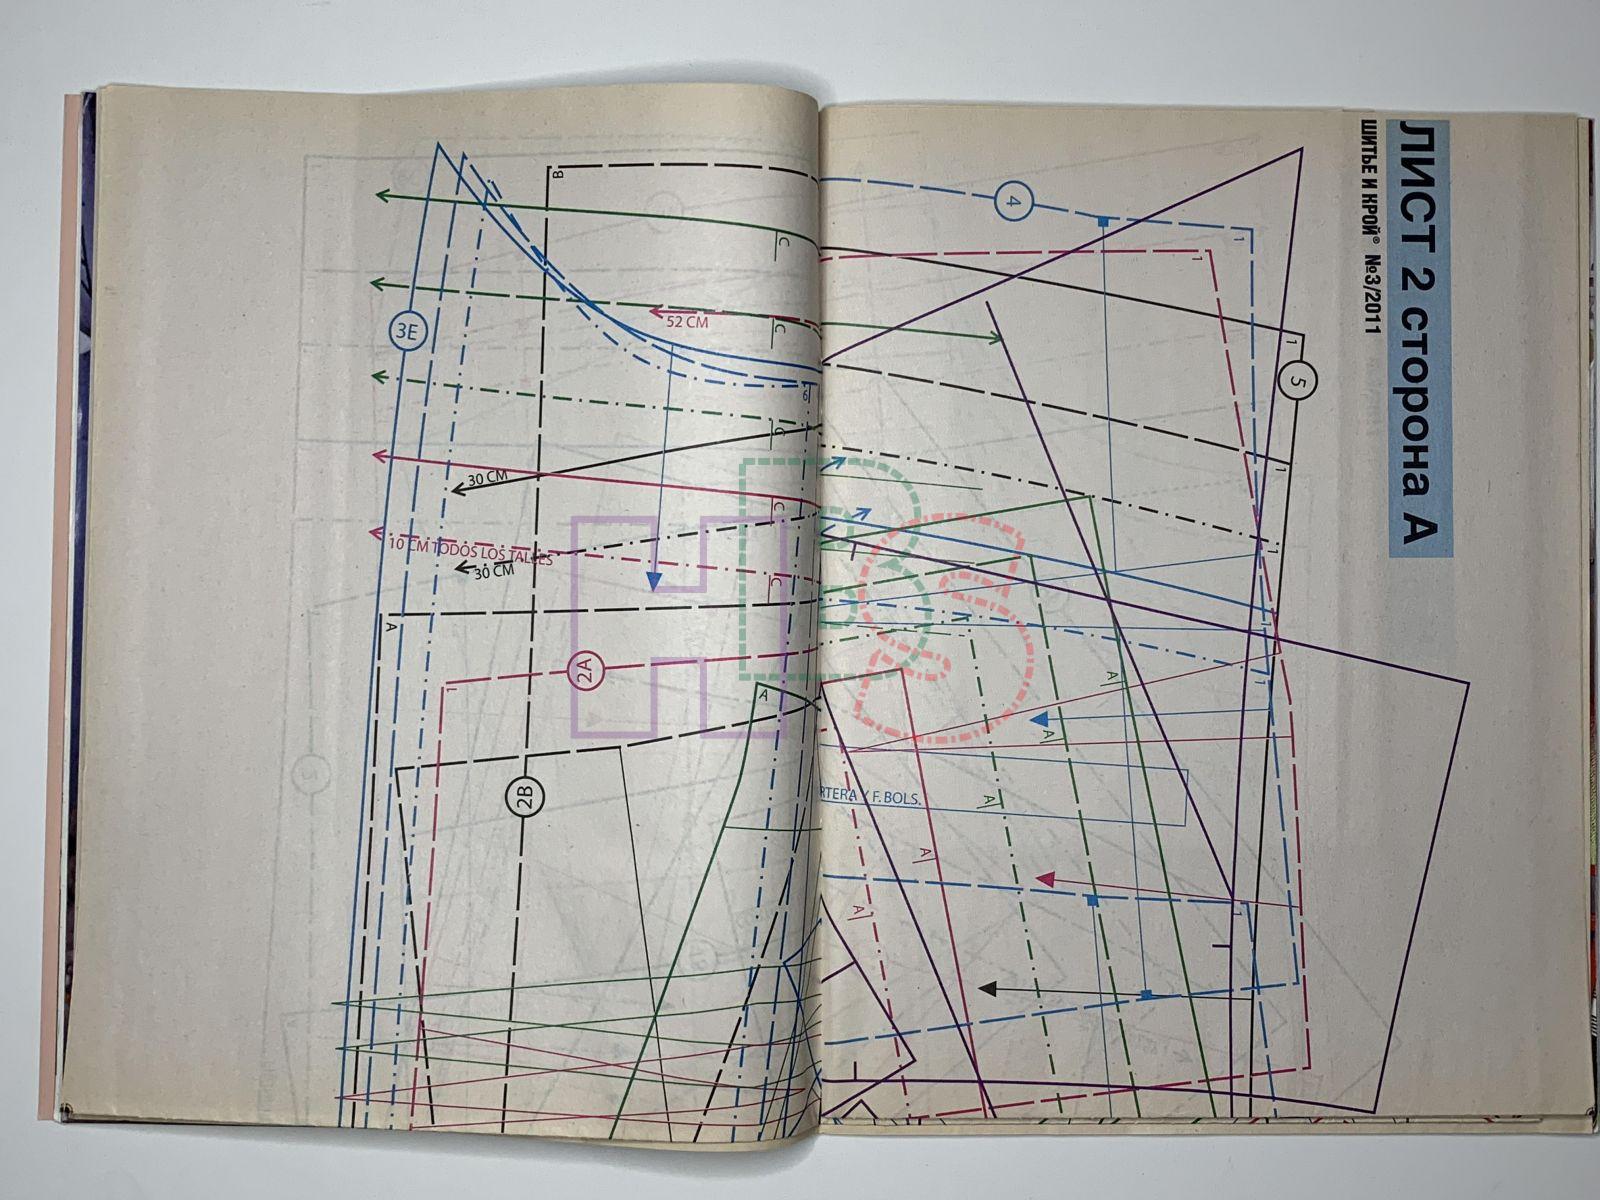 ЛИСТ 2 сторона А
ШИТЬЕ И КРОЙ® №3/2011
B
C
4
1
1
1
3E
52 CM
C
5
6
C
1
30 CM
C
1
10 CM TODOS LOS TALLES
30 CM
C
A
1
2A
1
1
A
A
A
2B
RTERA Y F. BOLS.
A
A
A
1
HBS